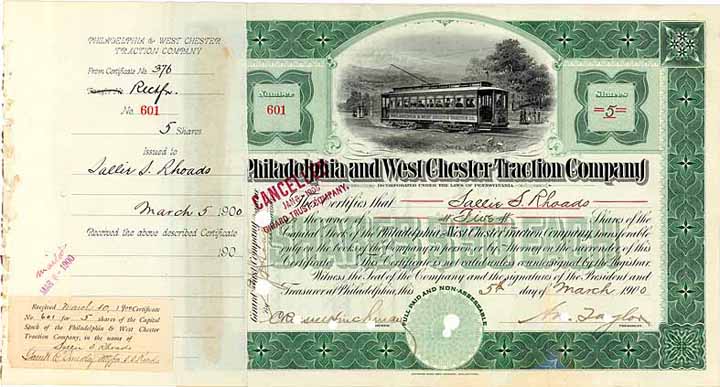 PHILADELPHIA & WEST CHESTER
TRACTION COMPANY
From Certificate No. 376
Transfer No. Rectfn.
No. 601
5 Shares
Issued to
Sallie S. Rhoads
March 5 1900
Received the above described Certificate
190
MAR 6 - 1900
Received March 10, 1900 Certificate
No. 601 for 5 shares of the Capital
Stock of the Philadelphia & West Chester
Traction Company, in the name of
Sallie S. Rhoads
Number
601
PHILADELPHIA & WEST CHESTER TRACTION CO.
Shares
5
Philadelphia and West Chester Traction Company
INCORPORATED UNDER THE LAWS OF PENNSYLVANIA
CANCELLED
GIRARD TRUST COMPANY.
This Certifies that Sallie S. Rhoads
is the owner of Five Shares of the
Capital Stock of the Philadelphia and West Chester Traction Company, transferable
only on the books of the Company in person or by Attorney on the surrender of this
Certificate. This Certificate is not valid unless countersigned by the Registrar.
Witness the Seal of the Company and the signatures of the President and
Treasurer at Philadelphia, this 5th day of March 1900
FULL PAID AND NON-ASSESSABLE
TREASURER.
Wm. Taylor
PRESIDENT.